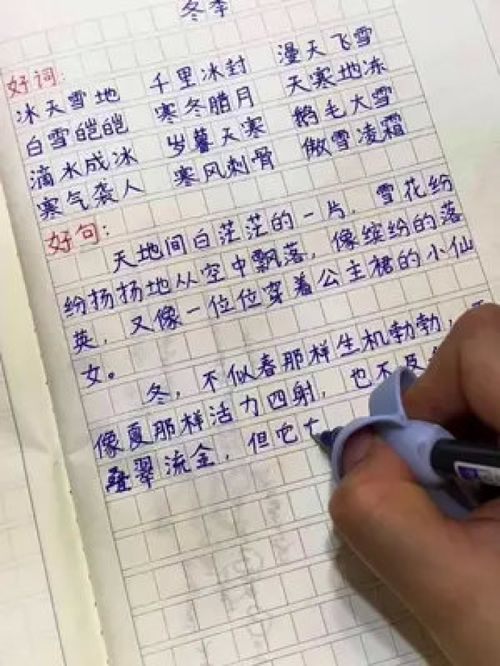 冬季
好词:
冰天雪地 千里冰封 漫天飞雪
白雪皑皑 寒冬腊月 天寒地冻
滴水成冰 岁暮天寒 鹅毛大雪
寒气袭人 寒风刺骨 傲雪凌霜
好句:
天地间白茫茫的一片，雪花纷
纷扬扬地从空中飘落，像缤纷的落
英，又像一位位穿着公主裙的小仙
女。
冬，不似春那样生机勃勃，
像夏那样活力四射，也不及
叠翠流金，但它